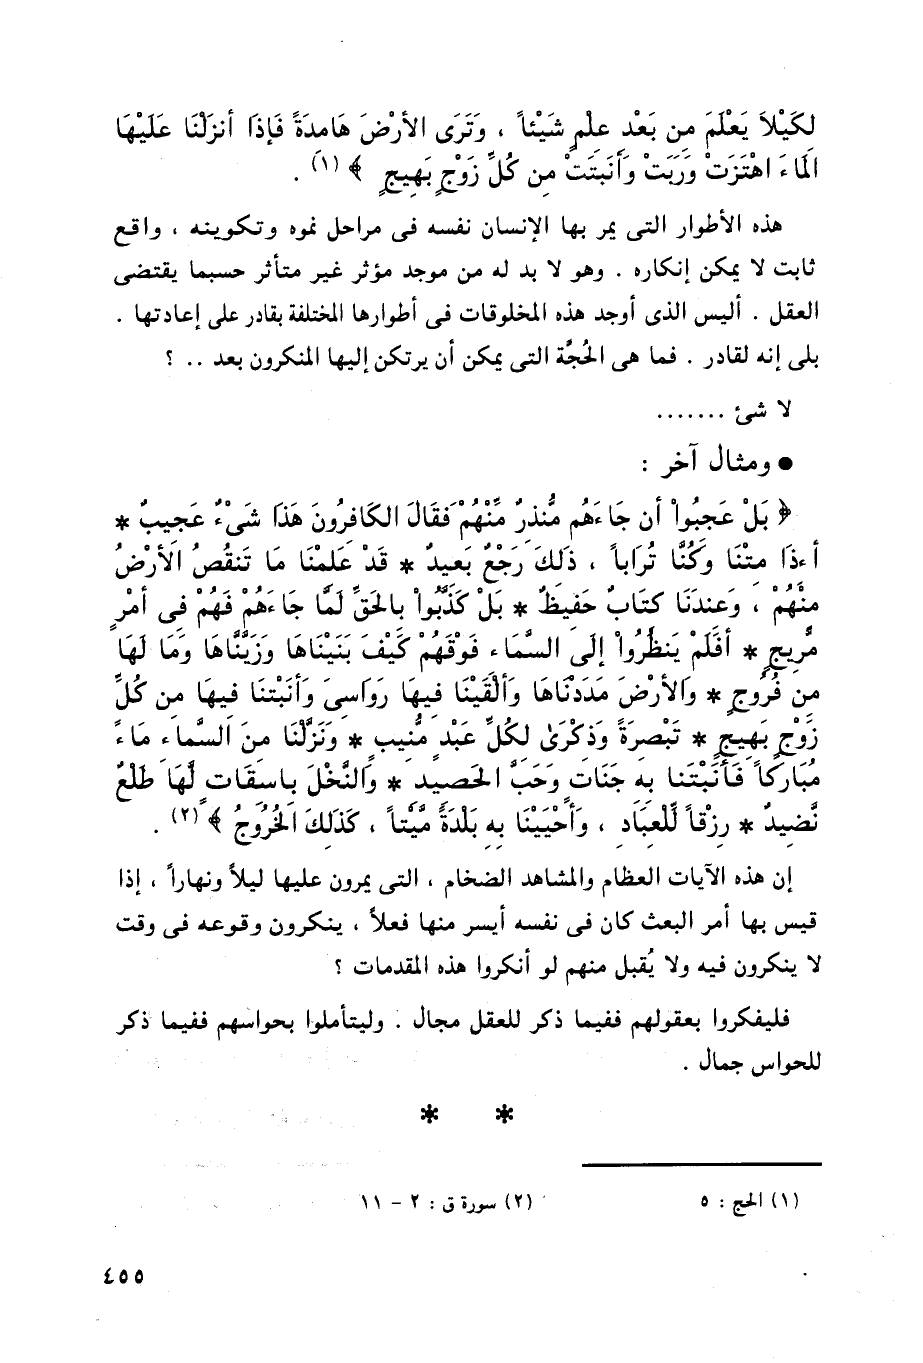 لِكَيْلاَ يَعْلَمَ مِن بَعْدِ عِلْمٍ شَيْئاً ، وَتَرَى الأَرْضَ هَامِدَةً فَإِذَا أَنزَلْنَا عَلَيْهَا
الْمَاءَ اهْتَزَتْ وَرَبَتْ وَأَنبَتَتْ مِن كُلِّ زَوْجٍ بَهِيجٍ ﴾ (١) .
هذه الأطوار التى يمر بها الإنسان نفسه فى مراحل نموه وتكوينه ، واقع
ثابت لا يمكن إنكاره . وهو لا بد له من موجد مؤثر غير متأثر حسبما يقتضى
العقل . أليس الذى أوجد هذه المخلوقات فى أطوارها المختلفة بقادر على إعادتها .
بلى إنه لقادر . فما هى الحُجَّة التى يمكن أن يرتكن إليها المنكرون بعد .. ؟
لا شئ .......
● ومثال آخر :
﴿ بَلْ عَجِبُواْ أَن جَاءَهُم مُّنذِرٌ مِّنْهُمْ فَقَالَ الكَافِرُونَ هَذَا شَىْءٌ عَجِيبٌ *
أَءِذَا مِتْنَا وَكُنَّا تُرَاباً ، ذَلِكَ رَجْعٌ بَعِيدٌ * قَدْ عَلِمْنَا مَا تَنقُصُ الأَرْضُ
مِنْهُمْ ، وَعِندَنَا كِتَابٌ حَفِيظٌ * بَلْ كَذَّبُواْ بِالحَقِّ لَمَّا جَاءَهُمْ فَهُمْ فِى أَمْرٍ
مَّرِيجٍ * أَفَلَمْ يَنظُرُواْ إِلَى السَّمَاءِ فَوْقَهُمْ كَيْفَ بَنَيْنَاهَا وَزَيَّنَّاهَا وَمَا لَهَا
مِن فُرُوجٍ * وَالأَرْضَ مَدَدْنَاهَا وَأَلْقَيْنَا فِيهَا رَوَاسِىَ وَأَنْبَتْنَا فِيهَا مِن كُلِّ
زَوْجٍ بَهِيجٍ * تَبْصِرَةً وَذِكْرَىٰ لِكُلِّ عَبْدٍ مُّنِيبٍ * وَنَزَّلْنَا مِنَ السَّمَاءِ مَاءً
مُّبَارَكاً فَأَنْبَتْنَا بِهِ جَنَّاتٍ وَحَبَّ الحَصِيدِ * وَالنَّخْلَ بَاسِقَاتٍ لَّهَا طَلْعٌ
نَّضِيدٌ * رِزْقاً لِّلْعِبَادِ ، وَأَحْيَيْنَا بِهِ بَلْدَةً مَّيْتاً ، كَذَلِكَ الخُرُوجُ ﴾ (٢) .
إن هذه الآيات العظام والمشاهد الضخام ، التى يمرون عليها ليلاً ونهاراً ، إذا
قيس بها أمر البعث كان فى نفسه أيسر منها فعلاً ، ينكرون وقوعه فى وقت
لا ينكرون فيه ولا يُقبل منهم لو أنكروا هذه المقدمات ؟
فليفكروا بعقولهم ففيما ذكر للعقل مجال . وليتأملوا بحواسهم ففيما ذكر
للحواس جمال .
* *
(١) الحج : ٥ (٢) سورة ق : ٢ - ١١
٤٥٥